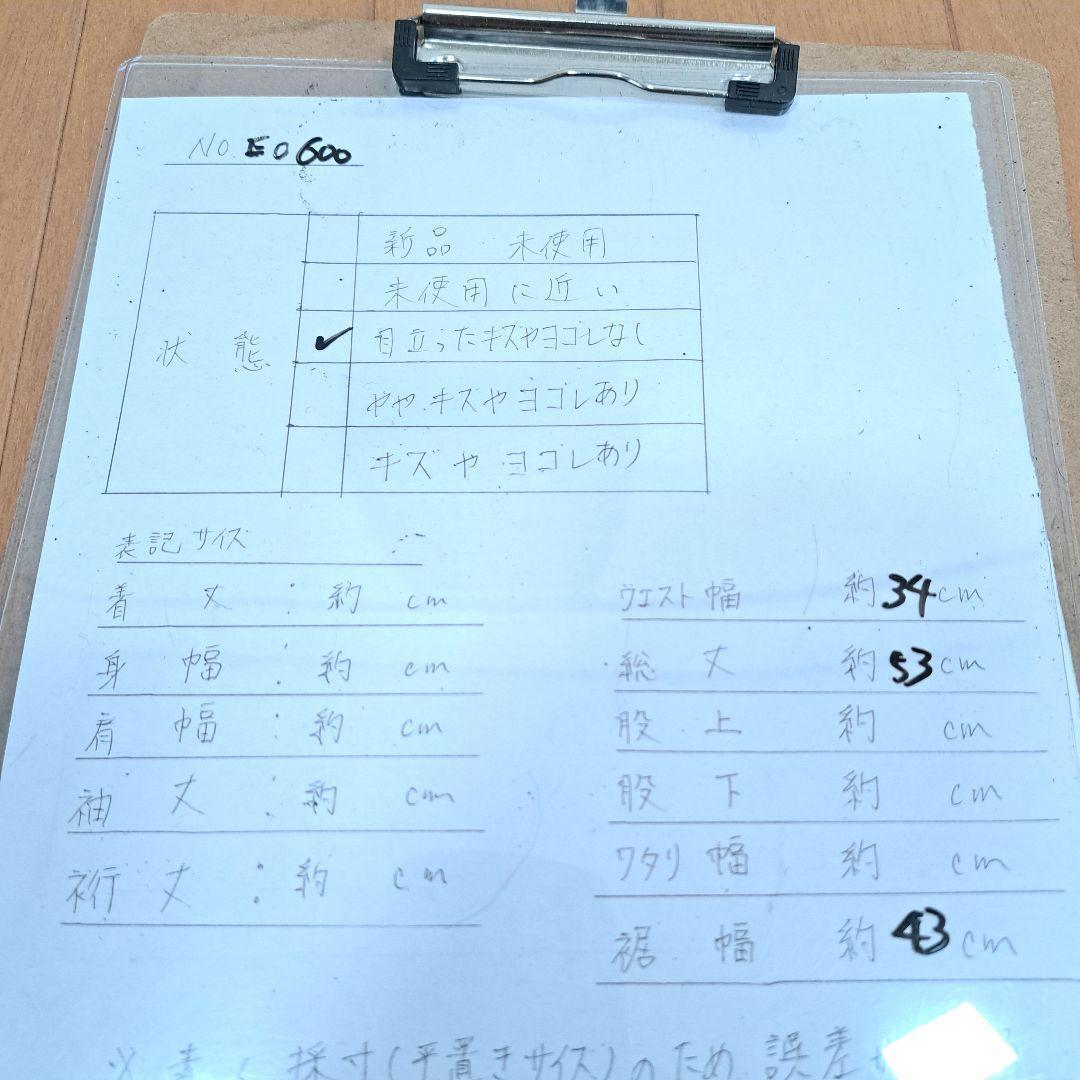 NO E0600
状態
新品 未使用
未使用に近い
✓ 目立ったキズやヨゴレなし
やや キズやヨゴレあり
キズやヨゴレあり
表記サイズ
着丈:約 cm
身幅:約 cm
肩幅:約 cm
袖丈:約 cm
裄丈:約 cm
ウエスト幅 約34cm
総丈 約53cm
股上 約 cm
股下 約 cm
ワタリ幅 約 cm
裾幅 約43cm
採寸(平置きサイズ)のため誤差